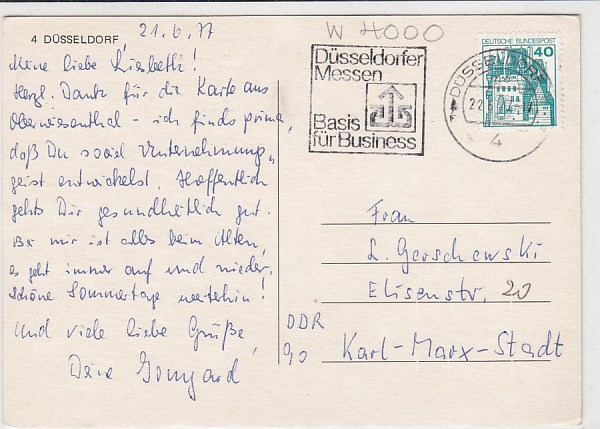 4 DÜSSELDORF
21.6.77
Meine liebe Liesbeth!
Herzl. Dank für die Karte aus
Oberwiesenthal - ich finds prima,
daß Du soviel Unternehmungs
geist entwickelst. Hoffentlich
gehts Dir gesundheitlich gut.
Bei mir ist alles beim Alten,
es geht immer auf und nieder.
Schöne Sommertage weiterhin!
Und viele liebe Grüße,
Deine
W 4000
Düsseldorfer
Messen
Basis
für Business
DÜSSELDORF
22
4
DEUTSCHE BUNDESPOST
40
Frau
L. Gerschewski
Elisenstr. 20
DDR
90 Karl-Marx-Stadt